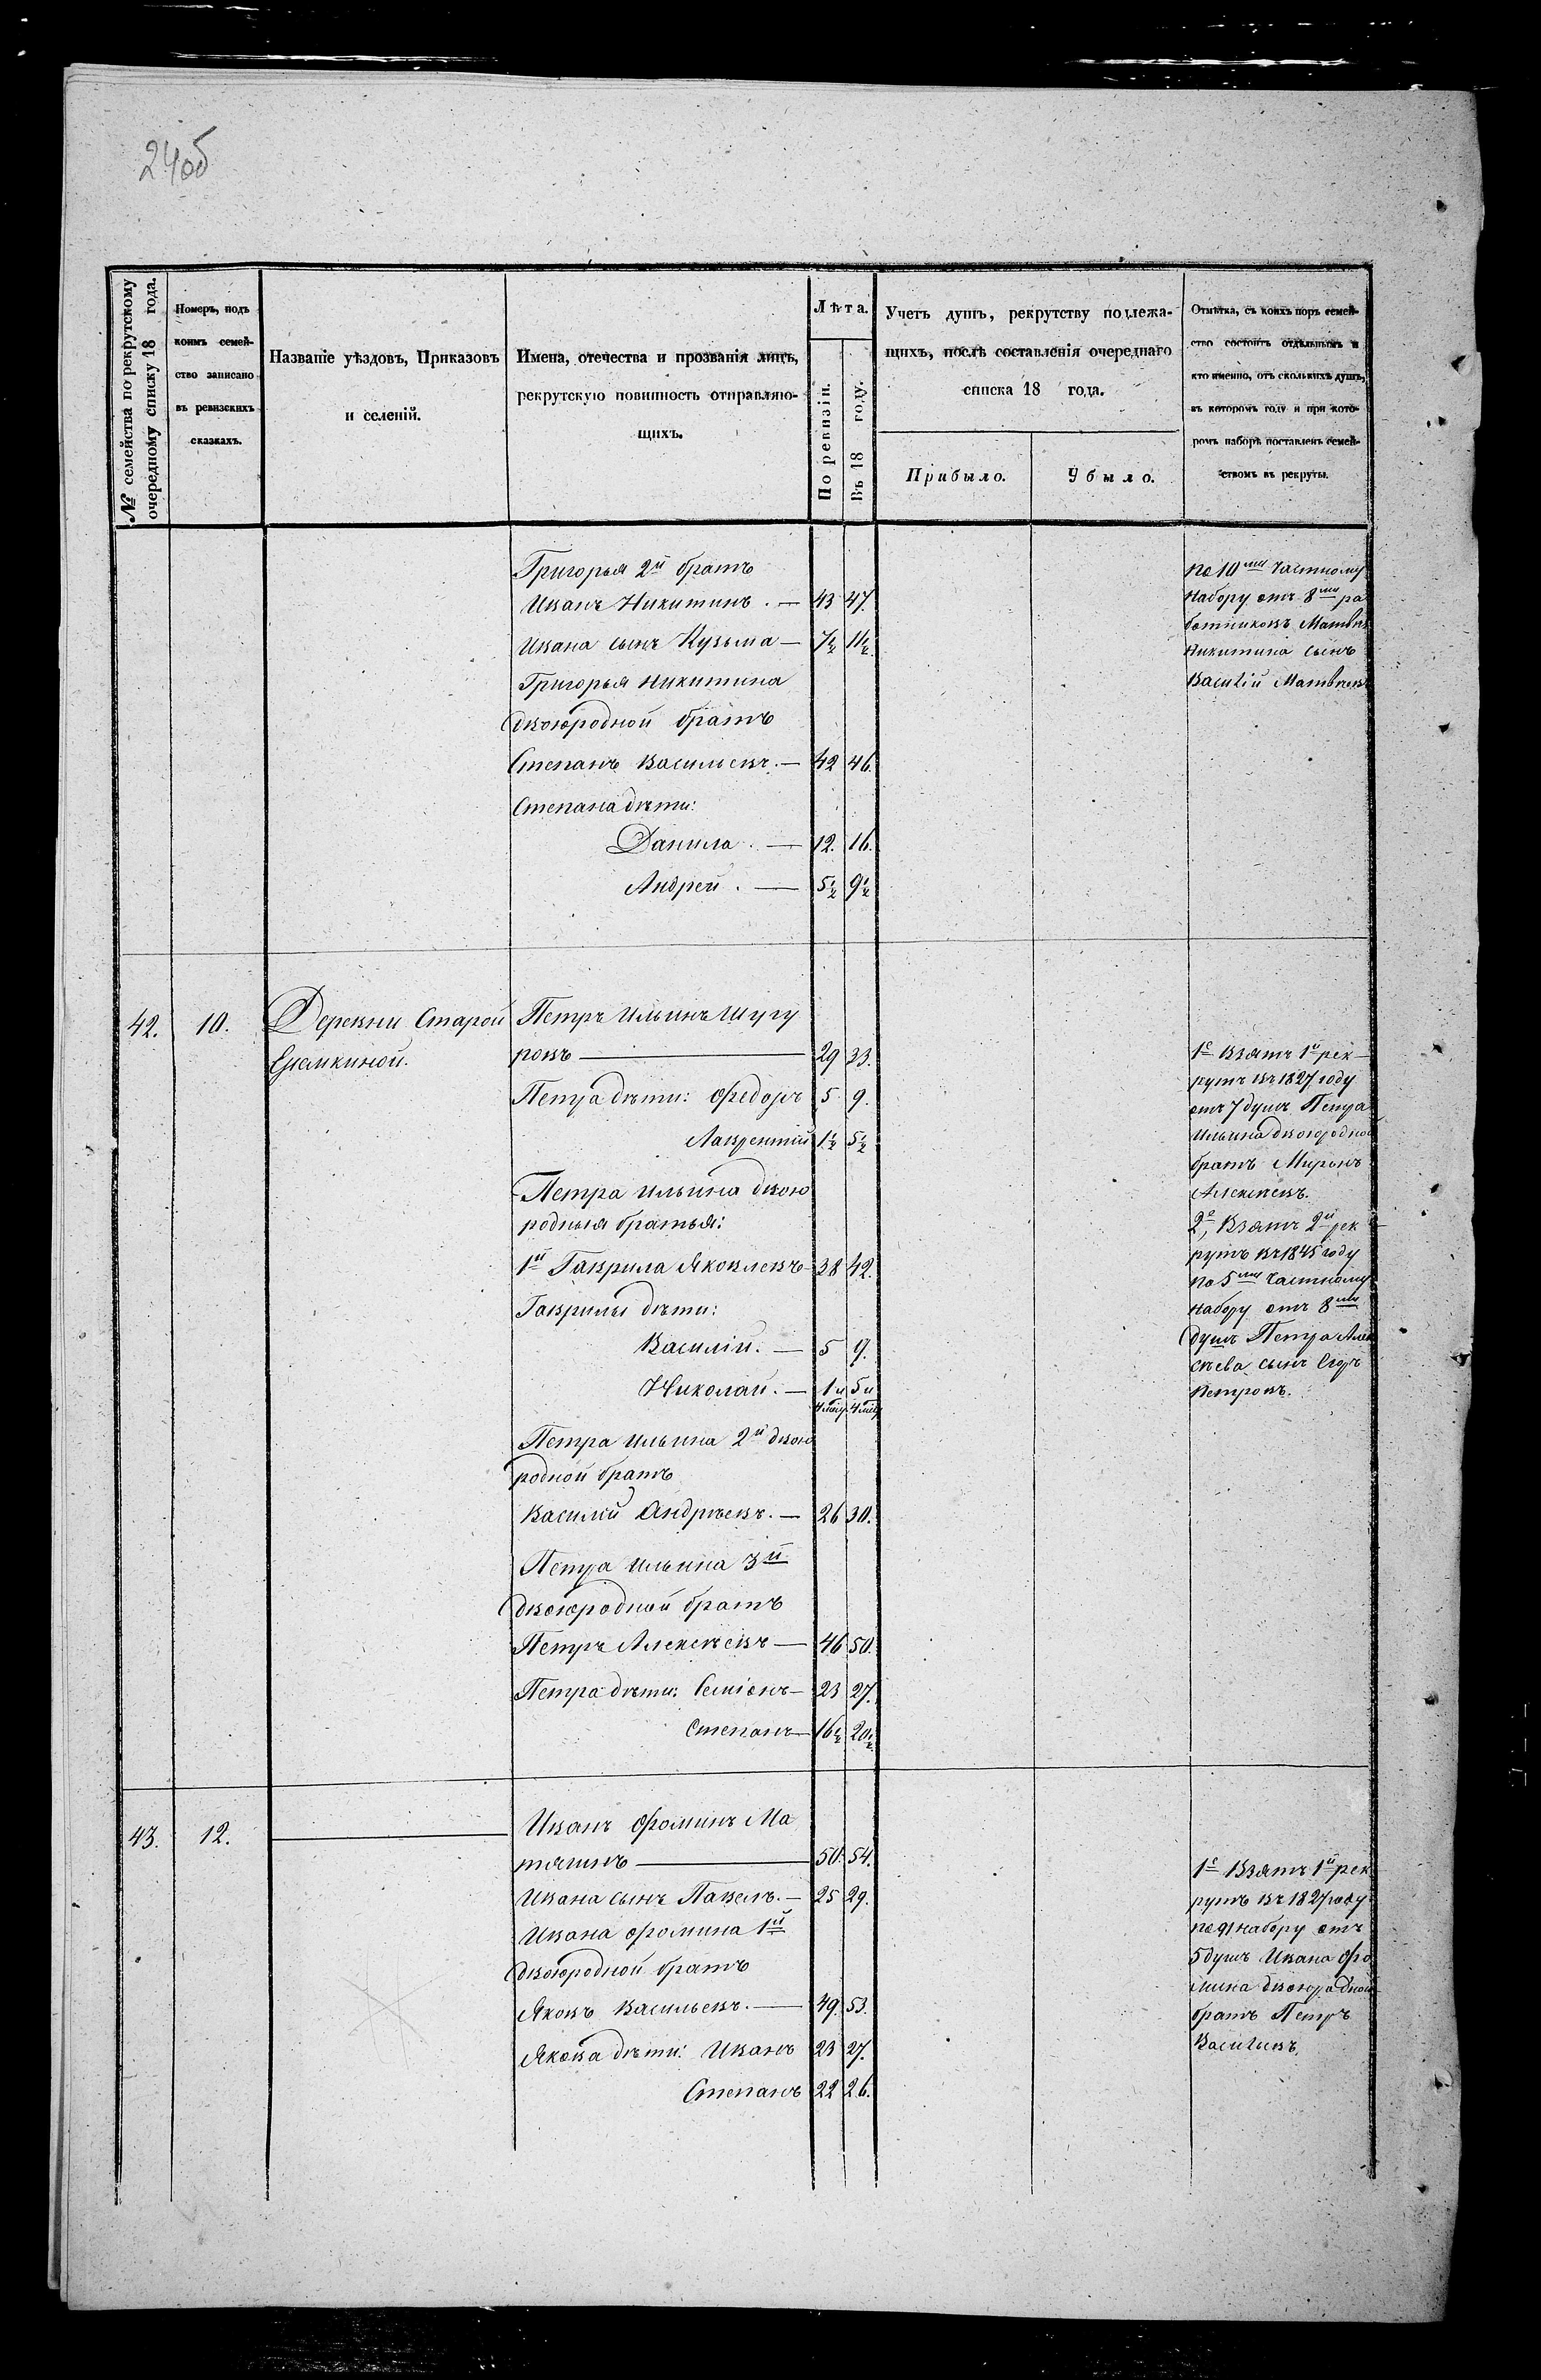 24об
№ семейства по рекрутскому
очередному списку 18 года.
Номеръ, подъ
коимъ семей-
ство записано
въ ревизскихъ
сказкахъ.
Названіе уѣздовъ, Приказовъ
и селеній.
Имена, отечества и прозванія лицъ,
рекрутскую повинность отправляю-
щихъ.
Лѣта.
По ревизіи.
Въ 18 году.
Учетъ душъ, рекрутству подлежа-
щихъ, послѣ составленія очереднаго
списка 18 года.
Прибыло.
Убыло.
Отмѣтка, съ коихъ поръ семей-
ство состоитъ отдѣльнымъ и
кто именно, отъ сколькихъ душъ,
въ которомъ году и при кото-
ромъ наборѣ поставленъ семей-
ствомъ въ рекруты.
Григорья 2й братъ
Иванъ Никитинъ. — 43 47.
Ивана сынъ Кузьма — 7½ 11½
Григорья Никитина
двоюродной братъ
Степанъ Васильевъ. — 42 46.
Степана дѣти:
Данила. — 12. 16.
Андрей. — 5½ 9½
по 10му частному
набору отъ 8ми ра
ботниковъ Матвѣя
Никитина сынъ
Василій Матвѣевъ
42. 10. Деревни Старой
Петръ Ильинъ Шугу
ровъ — 29 33.
Петра дѣти: Федоръ 5 9.
Лаврентій 1½ 5½
Петра Ильина двою
родныя братья:
1й Гаврила Яковлевъ — 38 42.
Гаврилы дѣти:
Василій. — 5 9.
Николай. — 1 и 5 и
4 мѣц. 4 мѣц.
Петра Ильина 2й двою
родной братъ
Василій Андрѣевъ. — 26 30.
Петра Ильина 3й
двоюродной братъ
Петръ Алексѣевъ — 46 50.
Петра дѣти: Семіонъ — 23 27.
Степанъ — 16½ 20½
1е Взятъ 1й рек
рутъ въ 1827 году
отъ 7 душъ Петра
Ильина двоюродной
братъ Миронъ
Алексѣевъ.
2е, Взятъ 2й рек
рутъ въ 1845 году
по 5му частному
набору отъ 8ми
душъ Петра Алек
сѣева сынъ Егоръ
Петровъ.
43. 12. —
Иванъ Фоминъ Ма
— 50. 54.
Ивана сынъ Павелъ. — 25 29.
Ивана Фомина 1й
двоюродной братъ
Яковъ Васильевъ. — 49. 53.
Якова дѣти: Иванъ 23 27.
Степанъ 22 26.
1е Взятъ 1й рек
рутъ въ 1827 году
по 91 набору отъ
5 душъ Ивана Фо
мина двоюродной
братъ Петръ
Васильевъ.